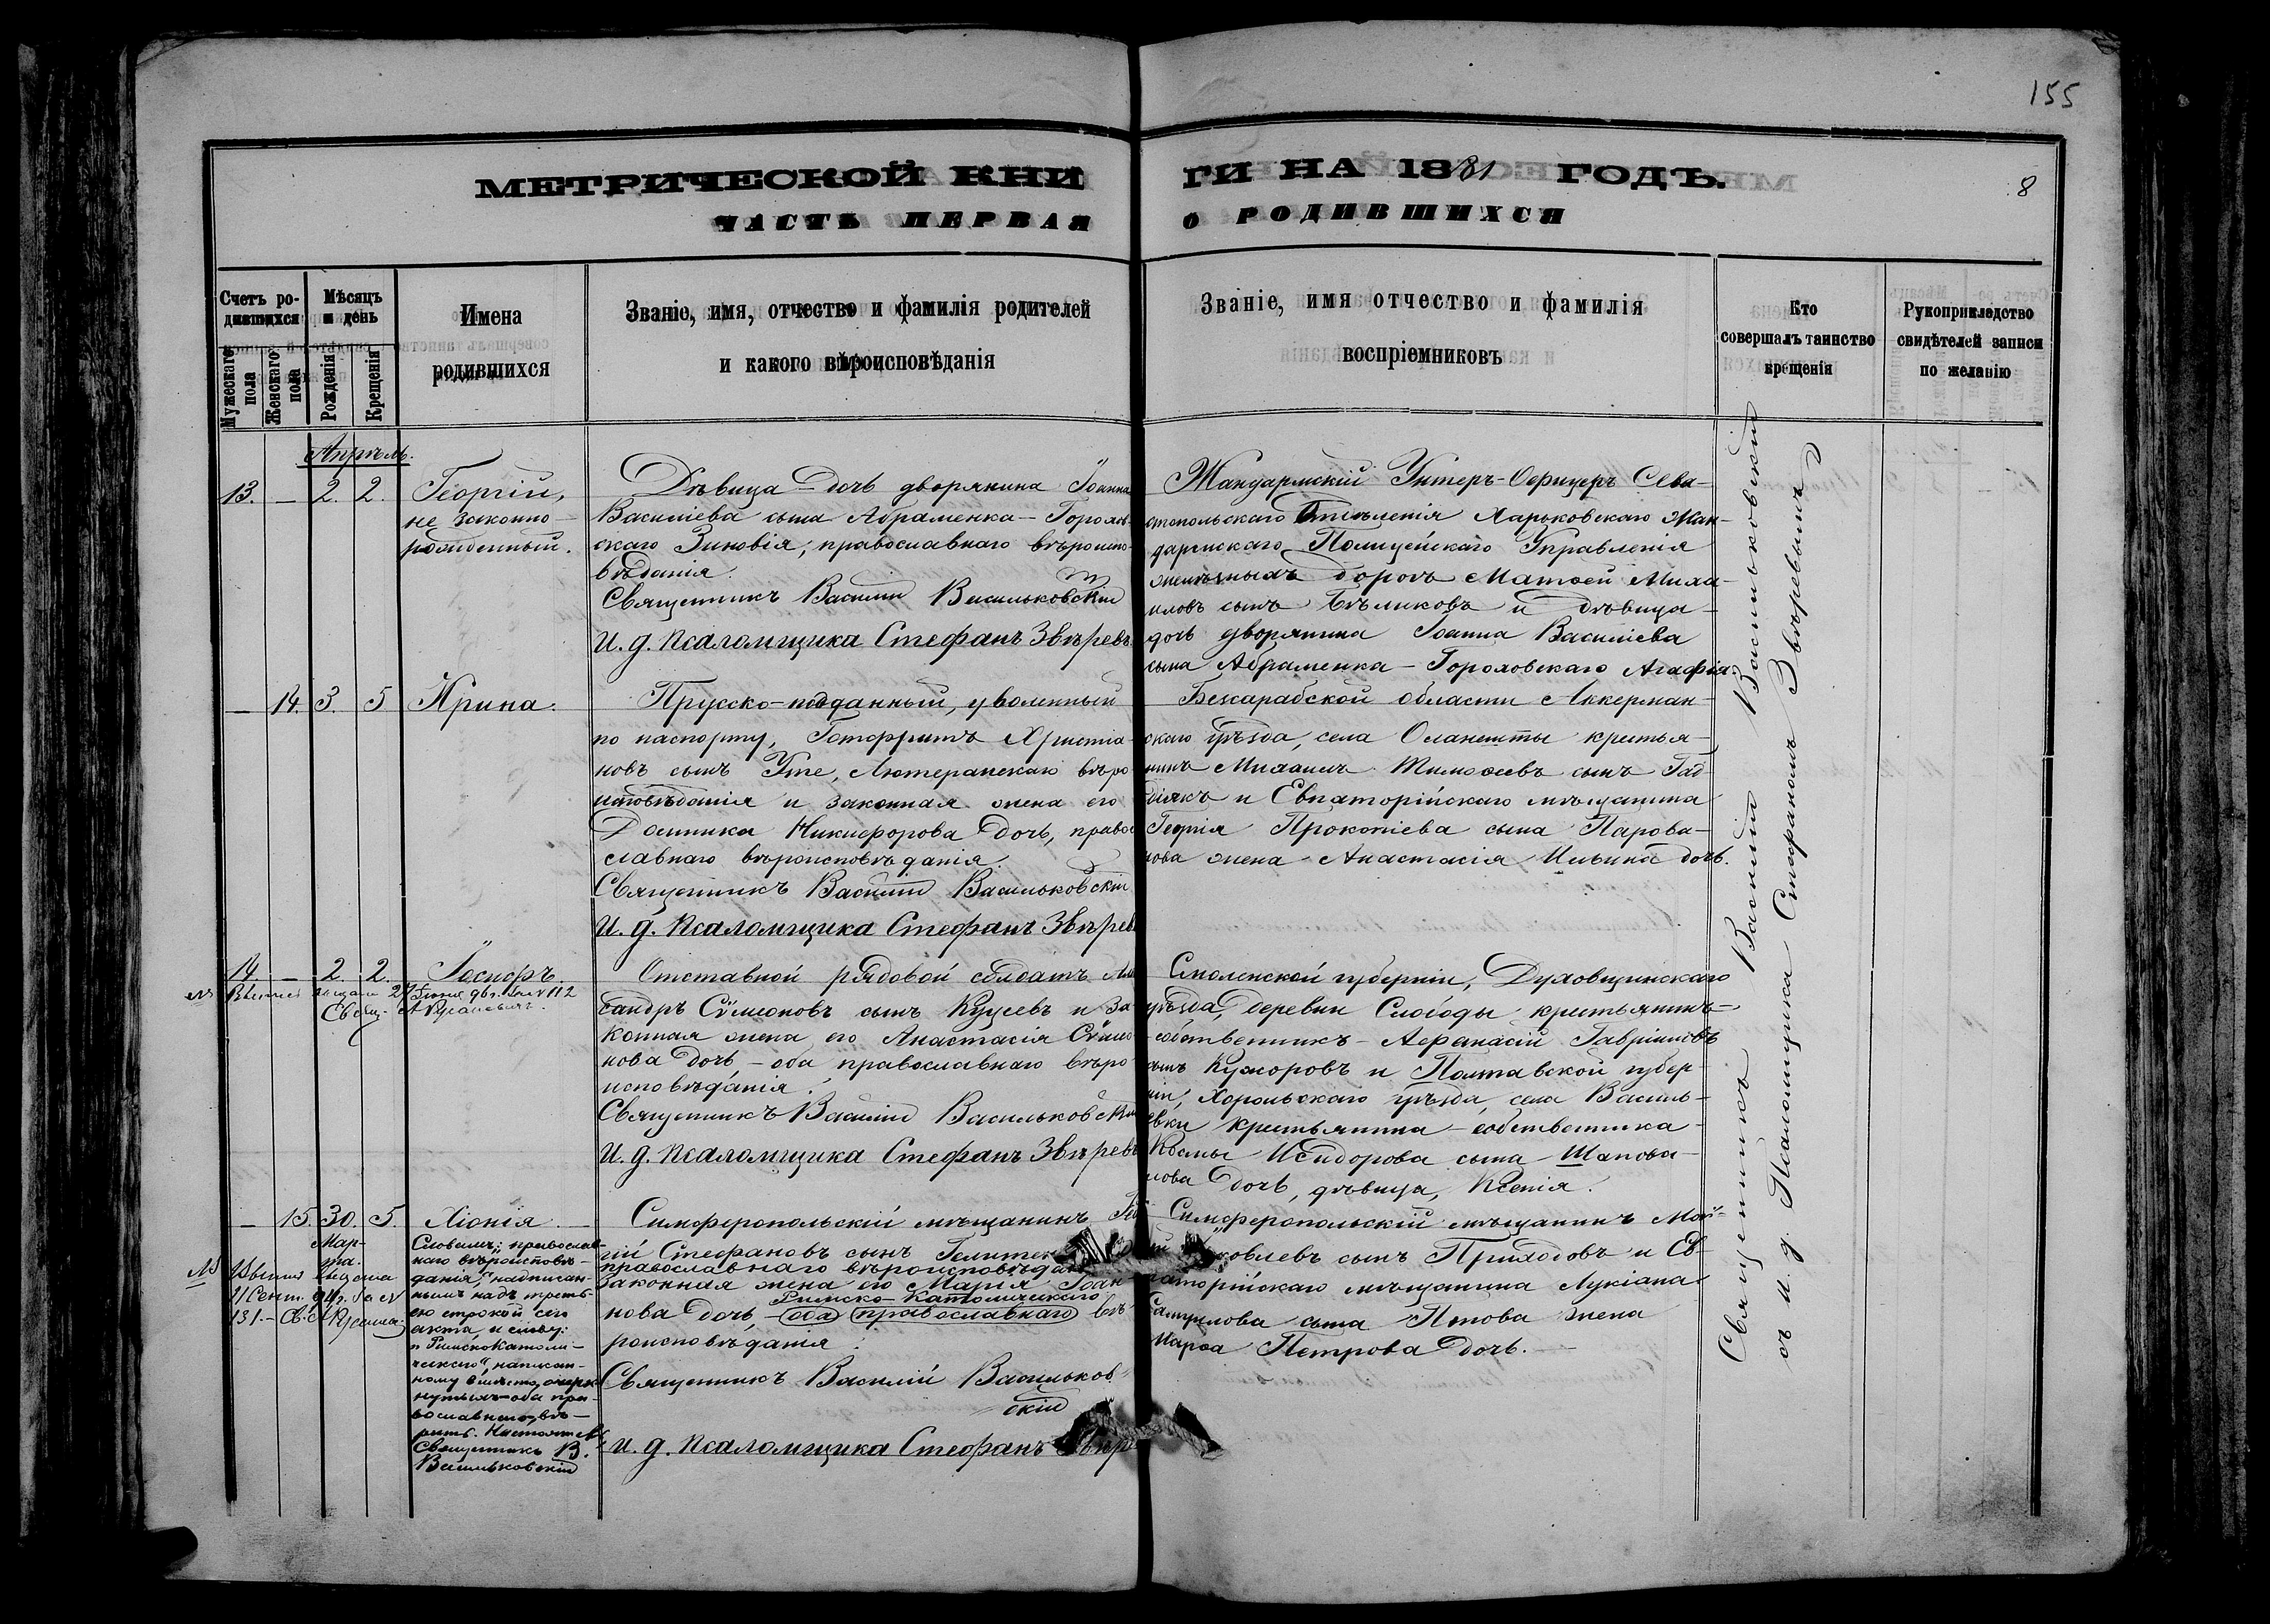 155
МЕТРИЧЕСКОЙ КНИ ГИ НА 1881 ГОДЪ.
8
ЧАСТЬ ПЕРВАЯ О РОДИВШИХСЯ
Счетъ ро-
дившихся
Мужескаго
пола
Женскаго
пола
Мѣсяцъ
и день
Рожденія
Крещенія
Имена
родившихся
Званіе, имя, отчество и фамилія родителей
и какого вѣроисповѣданія
Званіе, имя отчество и фамилія
воспріемниковъ
Кто
совершалъ таинство
крещенія
Рукоприкладство
свидѣтелей записи
по желанію
Апрѣль.
13. — 2. 2.
Георгій,
не законно-
рожденный.
Дѣвица – дочь дворянина Іоанна
Василіева сына Абраменка – Горохов-
скаго Зиновія, православнаго вѣроиспо-
вѣданія.
Священникъ Василій Васильковскій
И. д. псаломщика Стефанъ Звѣревъ
Жандармскій Унтеръ-Офицеръ Сева-
стопольскаго Отдѣленія Харьковскаго Жан-
дармскаго Полицейскаго Управленія
желѣзныхъ дорогъ Матѳей Миха-
иловъ сынъ Бѣликовъ и дѣвица-
дочь дворянина Іоанна Василіева
сына Абраменка – Гороховскаго Агафія.
— 14. 3. 5
Ирина.
Прусско-подданный, уволенный
по паспорту, Готфритъ Христіа-
новъ сынъ Уте, Лютеранскаго вѣро
исповѣданія и законная жена его
Домника Никифорова дочь, право-
славнаго вѣроисповѣданія.
Священникъ Василій Васильковскій
И. д. псаломщика Стефанъ Звѣревъ
Бессарабской области Аккерман-
скаго уѣзда, села Оланешты крестья-
нинъ Михаилъ Тимоѳеевъ сынъ Гай-
и Евпаторійскаго мѣщанина
Георгія Прокопіева сына Парова-
нова жена Анастасія Ильина дочь.
14 — 2. 2.
Іосифъ
27 Іюня 96 г. за № 112
Отставной рядовой солдатъ Алек
сандръ Сѵмеоновъ сынъ Куцевъ и за
конная жена его Анастасія Сѵмео
нова дочь, – оба православнаго вѣро
исповѣданія.
Священникъ Василій Васильковскій
И. д. псаломщика Стефанъ Звѣревъ
Смоленской губерніи, Духовщинскаго
уѣзда, деревни Слободы крестьянинъ-
собственникъ – Аѳанасій Гавріиловъ
сынъ Кужоровъ и Полтавской губер-
ніи, Хорольскаго уѣзда, села Василь-
евки крестьянина – собственника
Космы Исидорова сына Шапова-
лова дочь, дѣвица, Ксенія.
— 15. 30. 5.
Мар-
та.
Хіонія.
Словамъ: православ-
наго вѣроисповѣ-
данія, надписан-
нымъ надъ треть-
ею строкой сего
акта, и слову:
„Римскокатоли-
ческаго", написан-
ному вмѣсто зачерк-
нутыхъ – оба пра-
вославнаго, вѣ-
рить. Настоятель
Священникъ В.
Васильковскій
Симферопольскій мѣщанинъ Геор
гій Стефановъ сынъ
православнаго вѣроисповѣданія
законная жена его Марія Іоан-
Римско-Католическаго
нова дочь, – оба православнаго вѣ-
роисповѣданія.
Священникъ Василій Васильков-
скій
И. д. псаломщика Стефанъ Звѣревъ
Симферопольскій мѣщанинъ
сынъ Приходовъ и Ев-
паторійскаго мѣщанина Лукіана
сына Попова жена
Марѳа Петрова дочь.
Священникъ Василій Васильковскій
съ и. д. Псаломщика Стефаномъ Звѣревымъ